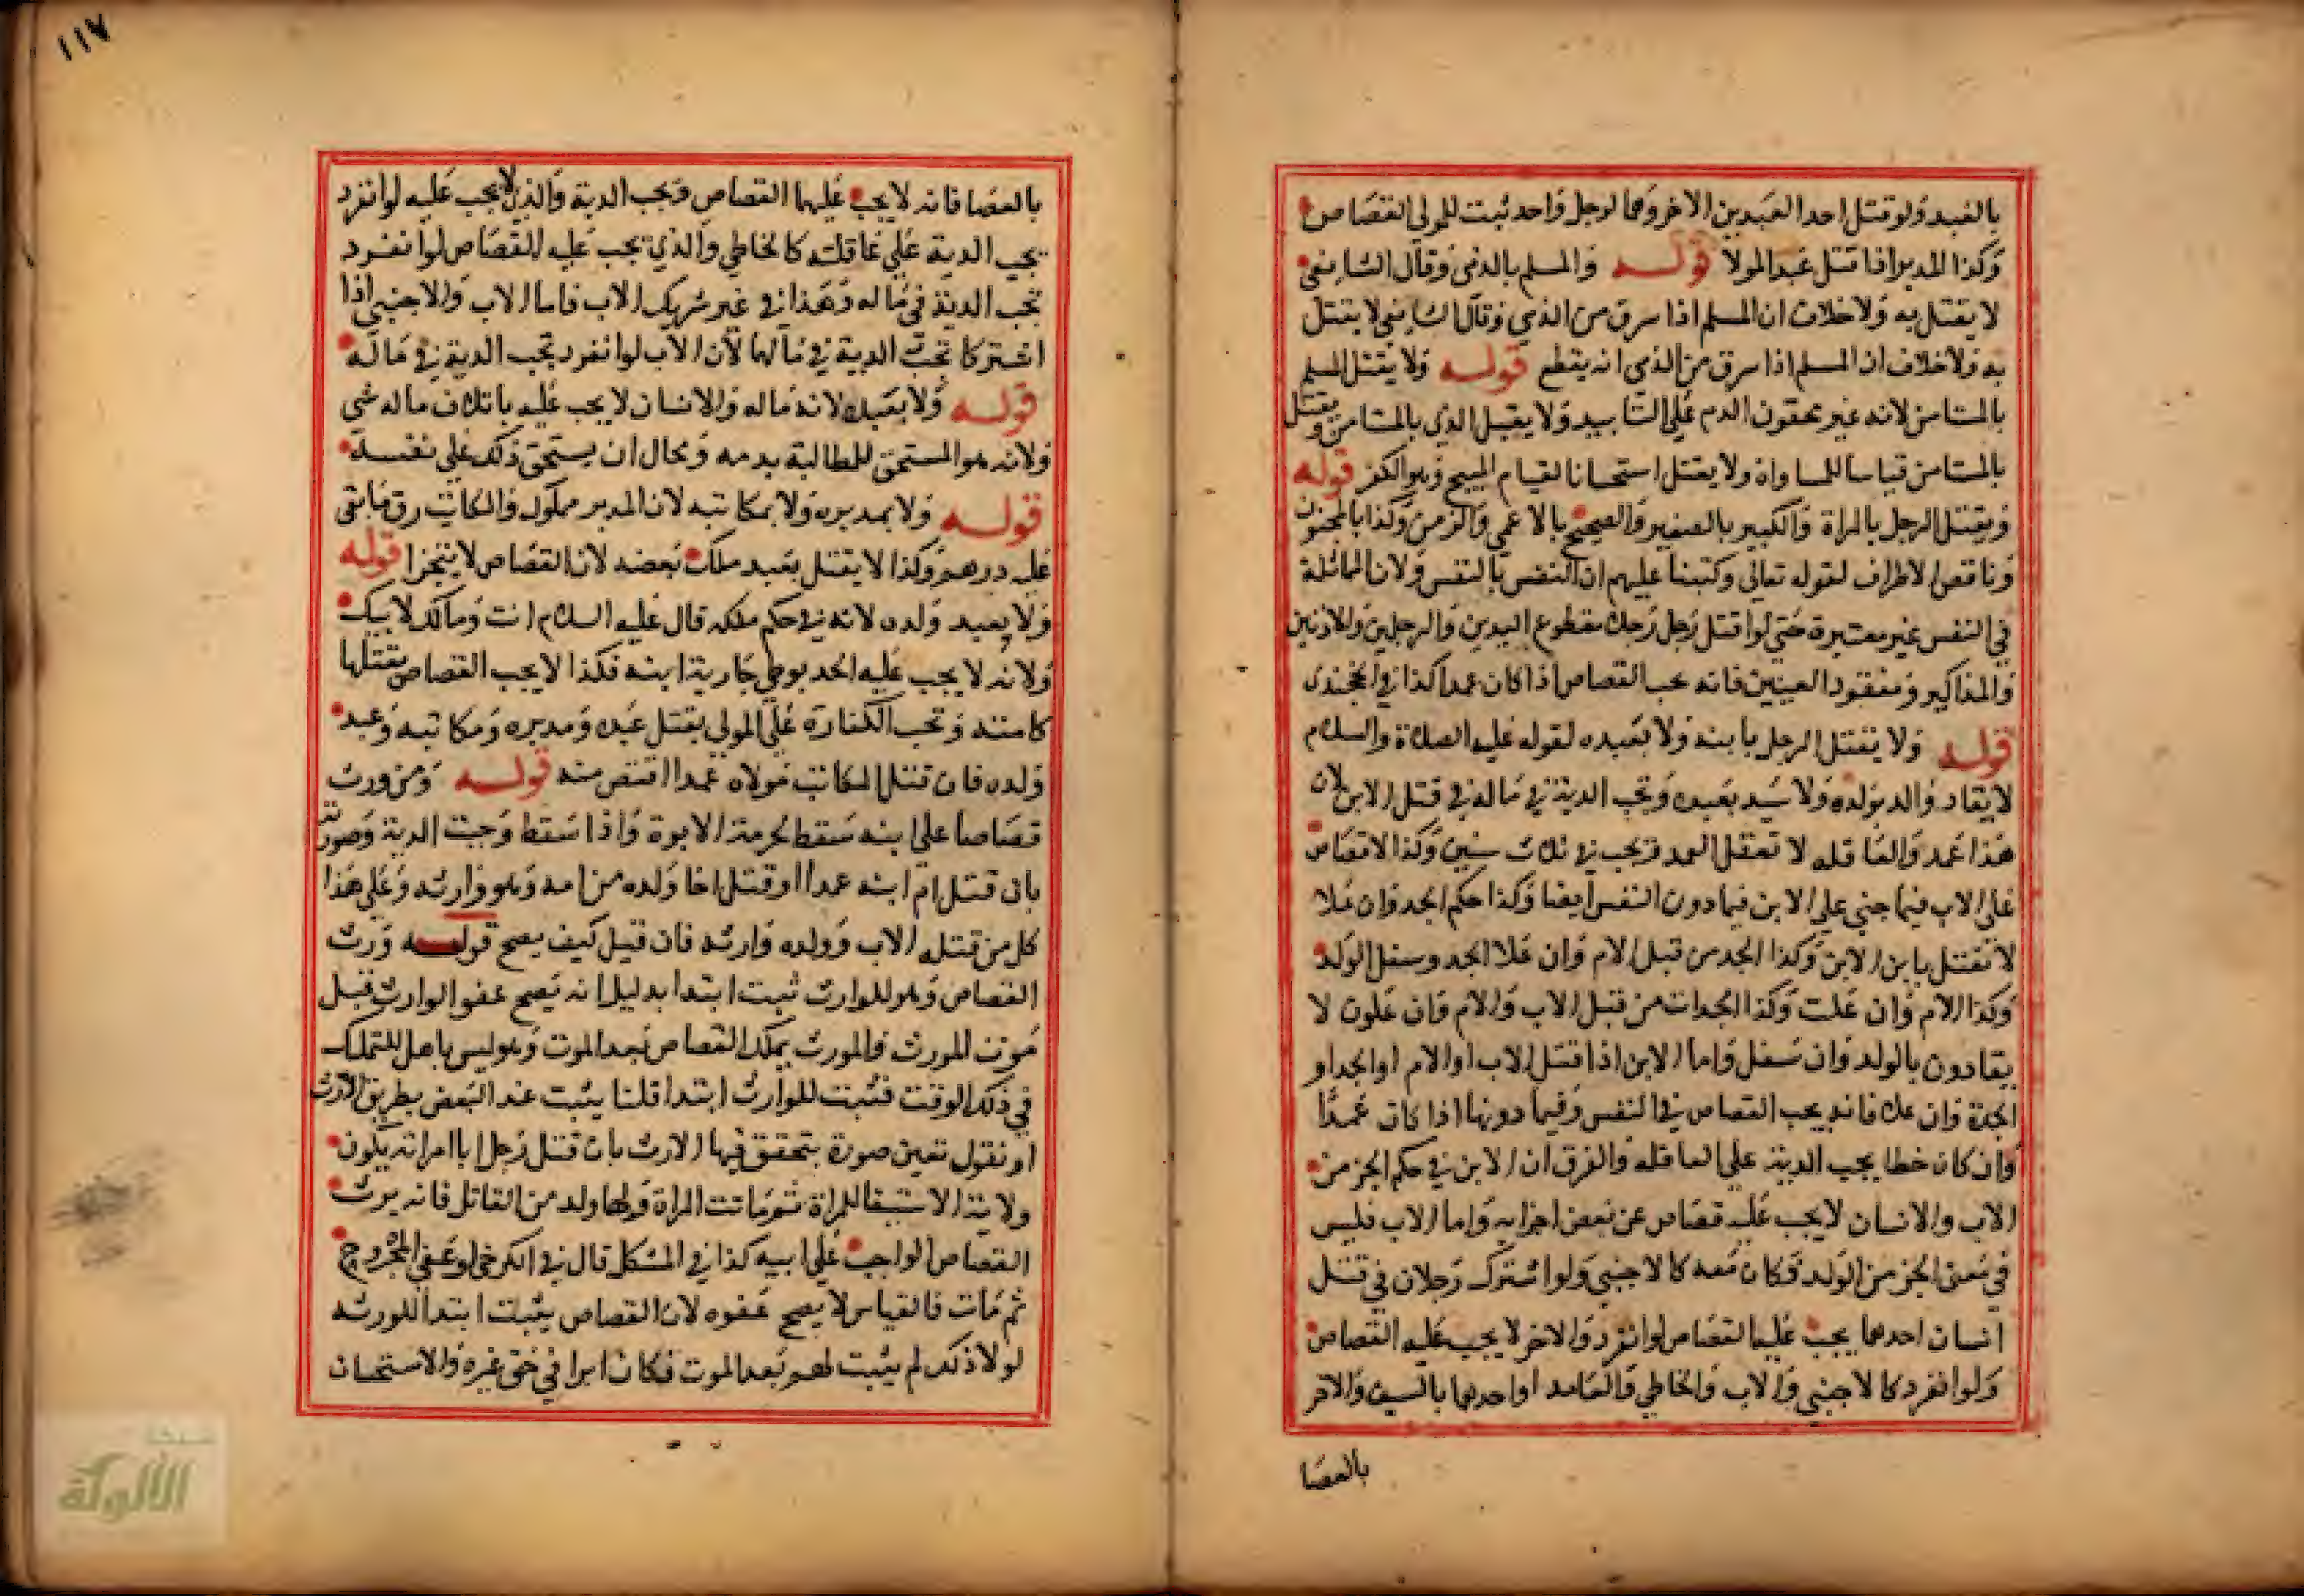 بالعبد ولو قتل احد العبدين الاخر وهما لرجل واحد ثبت للمولى القصاص
وكذا المدبر اذا قتل عبد المولا قوله والمسلم بالذمي وقال الشافعي
لا يقتل به ولا خلاف ان المسلم اذا سرق من الذمي وقال الشافعي لا يقتل
به ولا خلاف ان المسلم اذا سرق من الذمي انه يقطع قوله ولا يقتل المسلم
بالمستامن لانه غير محقون الدم علي التابيد ولا يقتل الذمي بالمستامن ويقتل
بالمستامن قياسا للمساواة ولا يقتل استحسانا لقيام المبيح وهو الكفر قوله
ويقتل الرجل بالمراة والكبير بالصغير والصحيح بالاعمي والزمن وكذا بالمجنون
وناقص الاطراف لقوله تعالى وكتبنا عليهم ان النفس بالنفس ولان المماثلة
في النفس غير معتبرة حتى لو قتل رجل رجلا مقطوع اليدين والرجلين والاذنين
والمذاكير ومفقود العينين فانه يجب القصاص اذا كان عمدا كذا في الخجندى
قوله ولا يقتل الرجل بابنه ولا بعبده لقوله عليه الصلاة والسلام
لا يقاد والد بولده ولا سيد بعبده وتجب الدية في ماله في قتل الابن لان
هذا عمد والعاقله لا تعقل العمد وتجب في ثلاث سنين وكذا لا قصاص
على الاب فيما جني علي الابن فيما دون النفس ايضا وكذا حكم الجد وان علا
لا تقتل بابن الابن وكذا الجد من قبل الام وان علا الجد وسفل الولد
وكذا الام وان علت وكذا الجدات من قبل الاب والام وان علون لا
يقادون بالولد وان سفل واما الابن اذا قتل الاب او الام او الجد او
الجدة وان علا فانه يجب القصاص في النفس وفيما دونها اذا كان عمدًا
وان كان خطا يجب الدية علي العاقله والفرق ان الابن في حكم الجز من
الاب والانسان لا يجب عليه قصاص عن بعض اجزايه واما الاب فليس
في معنى الجز من الولد وكان معه كالاجنبي ولو اشترك رجلان في قتل
انسان احدهما يجب عليه القصاص لو انفرد والاخر لا يجب عليه القصاص
ولو انفرد كالاجنبي والاب والخاطي والعامد او احدهما بالسيف والاخر
بالعصا
١١٧
بالعصا فانه لا يجب عليهما القصاص وتجب الدية والذي لا يجب عليه لو انفرد
يجب الدية علي عاقلته كالخاطي والذي يجب عليه القصاص لو انفرد
تجب الدية في ماله وهذا في غير شريك الاب فاما الاب والاجنبي اذا
اشتركا تجب الدية في مالهما لان الاب لو انفرد تجب الدية في ماله
قوله ولا بعبده لانه ماله والانسان لا يجب عليه باتلاف ماله شي
ولانه هو المستحق للمطالبة بدمه ومحال ان يستحق ذلك علي نفسه
قوله ولا بمدبره ولا بمكاتبه لان المدبر مملوك والمكاتب رق ما بقي
عليه درهم وكذا لا يقتل بعبد ملك بعضه لان القصاص لا يتجزا قوله
ولا بعبد ولده لانه في حكم ملكه قال عليه السلام انت ومالك لابيك
ولانه لا يجب عليه الحد بوطي جارية ابنه فكذا لا يجب القصاص بقتلها
كامته وتجب الكفارة علي المولي بقتل عبده ومدبره ومكاتبه وعبد
ولده فان قتل المكاتب مولاه عمدا اقتص منه قوله ومن ورث
قصاصا علي ابيه سقط لحرمة الابوة واذا سقط وجبت الدية وصورته
بان قتل ام ابنه عمدا او قتل اخا ولده من امه وهو وارثه وعلى هذا
كل من قتله الاب وولده وارثه فان قيل كيف يصح قوله ورث
القصاص وهو للوارث ثبت ابتدا بدليل انه يصح عفو الوارث قبل
موت المورث والمورث يملك القصاص بعد الموت وهو ليس باهل للتملك
في ذلك الوقت فثبت للوارث ابتدا قلنا يثبت عند البعض بطريق الارث
او نقول تعين صورة يتحقق فيها الارث بان قتل رجل ابا امراته يكون
ولاية الاستيفا للمراة ثم ماتت المراة ولها ولد من القاتل فانه يرث
القصاص الواجب علي ابيه كذا في المشكل قال في الكرخي لو عفي المجروح
ثم مات فالقياس لا يصح عفوه لان القصاص يثبت ابتدا للورثه
لولا ذلك لم يثبت لهم بعد الموت فكان ابرا في حق غيره والاستحسان
الألوكة